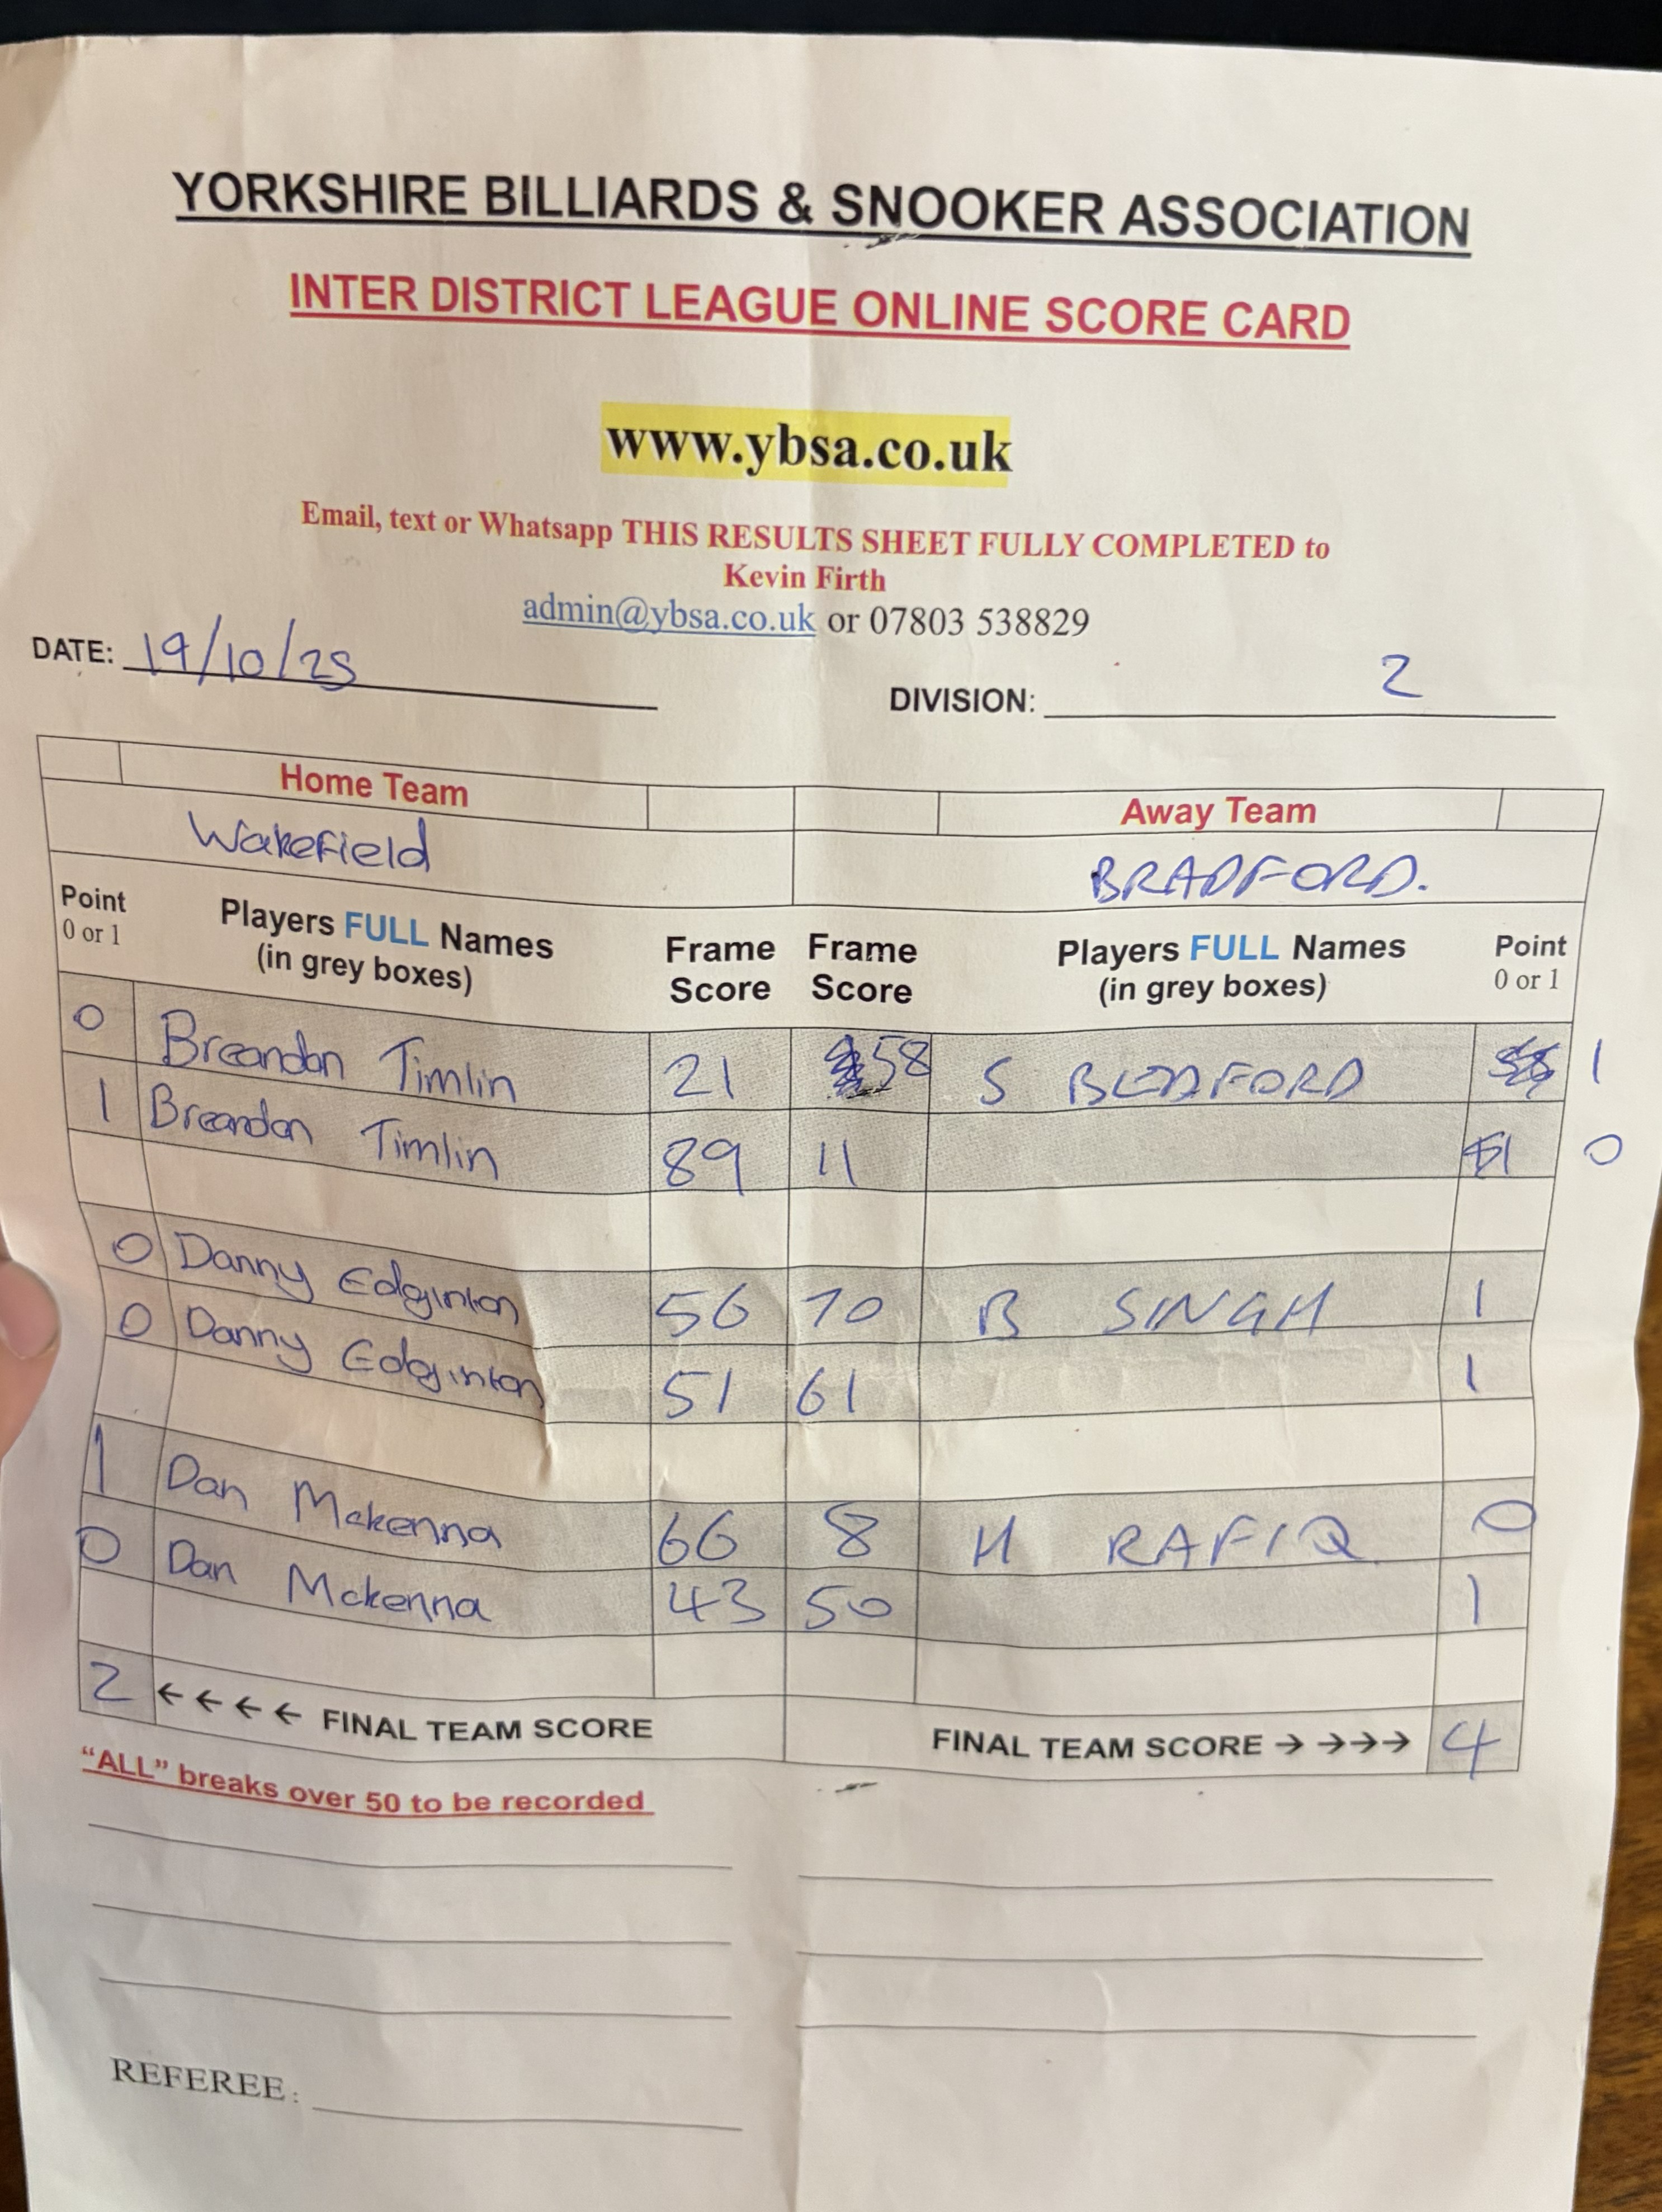 YORKSHIRE BILLIARDS & SNOOKER ASSOCIATION
INTER DISTRICT LEAGUE ONLINE SCORE CARD
www.ybsa.co.uk
Email, text or Whatsapp THIS RESULTS SHEET FULLY COMPLETED to
Kevin Firth
admin@ybsa.co.uk or 07803 538829
DATE: 19/10/25
DIVISION: 2
Home Team Away Team
Wakefield BRADFORD.
Point Players FULL Names Frame Frame Players FULL Names Point
0 or 1 (in grey boxes) Score Score (in grey boxes) 0 or 1
0 Breandan Timlin 21 58 S BEDFORD 1
1 Breandan Timlin 89 11 0
0 Danny Edginton 56 70 B SINGH 1
0 Danny Edginton 51 61 1
1 Dan Mckenna 66 8 H RAFIQ 0
0 Dan Mckenna 43 50 1
2 ←←←← FINAL TEAM SCORE FINAL TEAM SCORE → →→→ 4
“ALL” breaks over 50 to be recorded
REFEREE: